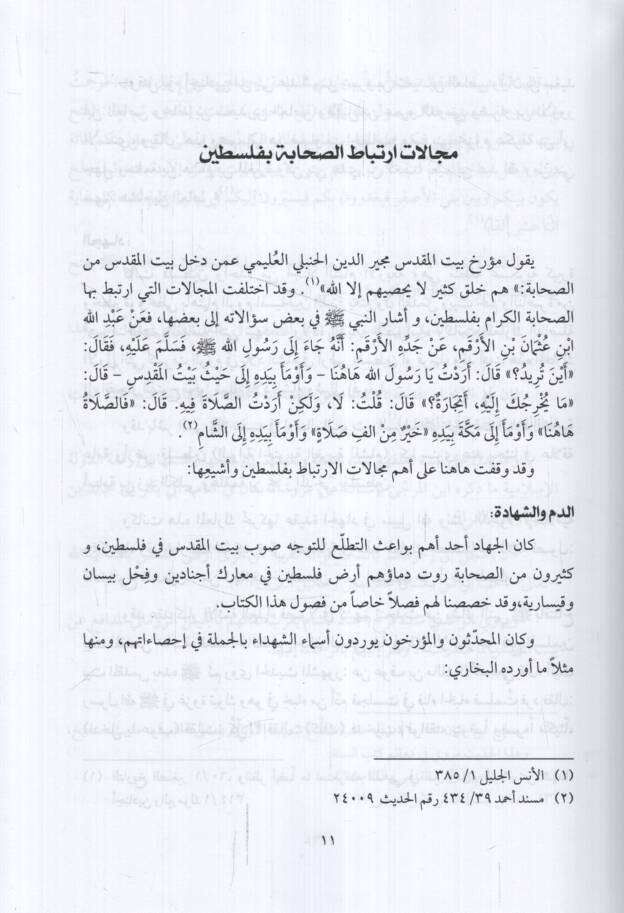 مجالات ارتباط الصحابة بفلسطين
يقول مؤرخ بيت المقدس مجير الدين الحنبلي العُليمي عمن دخل بيت المقدس من
الصحابة:» هم خلق كثير لا يحصيهم إلا الله»(١). وقد اختلفت المجالات التي ارتبط بها
الصحابة الكرام بفلسطين، و أشار النبي ﷺ في بعض سؤالاته إلى بعضها، فعَنْ عَبْدِ الله
ابْنِ عُثْمَانَ بْنِ الأَرْقَمِ، عَنْ جَدِّهِ الأَرْقَمِ: أَنَّهُ جَاءَ إِلَى رَسُولِ الله ﷺ، فَسَلَّمَ عَلَيْهِ، فَقَالَ:
«أَيْنَ تُرِيدُ؟» قَالَ: أَرَدْتُ يَا رَسُولَ الله هَاهُنَا - وَأَوْمَأَ بِيَدِهِ إِلَى حَيْثُ بَيْتُ المَقْدِسِ - قَالَ:
«مَا يُخْرِجُكَ إِلَيْهِ، أَتِجَارَةٌ؟» قَالَ: قُلْتُ: لَا، وَلَكِنْ أَرَدْتُ الصَّلَاةَ فِيهِ. قَالَ: «فَالصَّلَاةُ
هَاهُنَا» وَأَوْمَأَ إِلَى مَكَّةَ بِيَدِهِ «خَيْرٌ مِنْ الفِ صَلَاةٍ» وَأَوْمَأَ بِيَدِهِ إِلَى الشَّامِ(٢).
وقد وقفت هاهنا على أهم مجالات الارتباط بفلسطين وأشيَعِها:
الدم والشهادة:
كان الجهاد أحد أهم بواعث التطلّع للتوجه صوب بيت المقدس في فلسطين، و
كثيرون من الصحابة روت دماؤهم أرض فلسطين في معارك أجنادين وفِحْل بيسان
وقيسارية،وقد خصصنا لهم فصلاً خاصاً من فصول هذا الكتاب.
وكان المحدّثون والمؤرخون يوردون أسماء الشهداء بالجملة في إحصاءاتهم، ومنها
مثلاً ما أورده البخاري:
(١) الأنس الجليل ١/ ٣٨٥
(٢) مسند أحمد ٣٩/ ٤٣٤ رقم الحديث ٢٤٠٠٩
١١